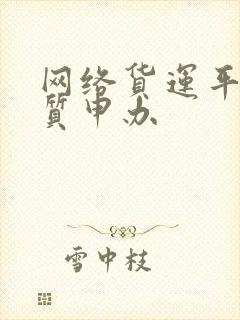 网络货运平
质申办
雪中枝